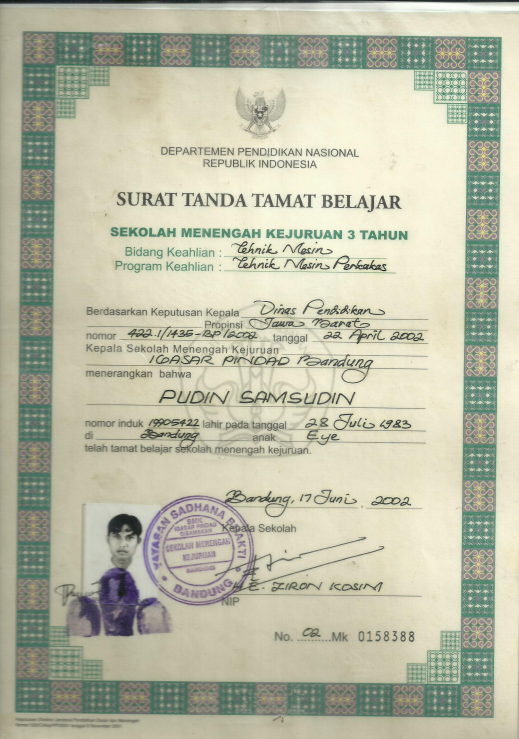 DEPARTEMEN PENDIDIKAN NASIONAL
REPUBLIK INDONESIA
SURAT TANDA TAMAT BELAJAR
SEKOLAH MENENGAH KEJURUAN 3 TAHUN
Bidang Keahlian : Tehnik Mesin
Program Keahlian : Tehnik Mesin Perkakas
Berdasarkan Keputusan Kepala Dinas Pendidikan
Propinsi Jawa Barat
nomor 422.1/1435-BP/2002 tanggal 22 April 2002
Kepala Sekolah Menengah Kejuruan
IGASAR PINDAD Bandung
menerangkan bahwa
PUDIN SAMSUDIN
nomor induk 19905422 lahir pada tanggal 28 Juli 1983
di Bandung anak Eye
telah tamat belajar sekolah menengah kejuruan.
Bandung, 17 Juni 2002
Kepala Sekolah
YAYASAN SADHANA BHAKTI
IGASAR PINDAD
SEKOLAH MENENGAH
KEJURUAN
BANDUNG
BANDUNG
E. ZIRON KOSIM
NIP
No. 02 Mk 0158388